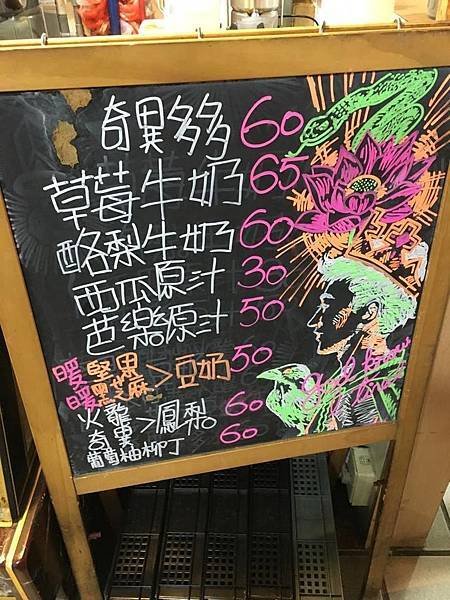 奇異多多 60
草莓牛奶 65
酪梨牛奶 60
西瓜原汁 30
芭樂原汁 50
暖 堅果
暖 黑芝麻 > 豆奶 50
火龍
奇異 > 鳳梨 60
葡萄柚柳丁 60